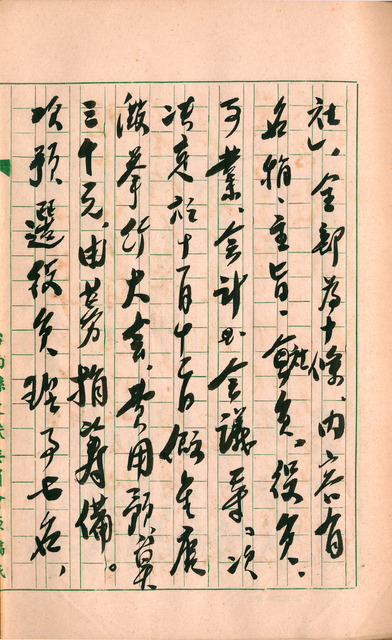 社」,全部為十條,内容有
名稱、主旨、社員、役員、
事業、会計及会議等。次
決定於十一月十二日假
舉行大會,費用預算
三十元,由捐籌備。
次預選役員,理事七名,